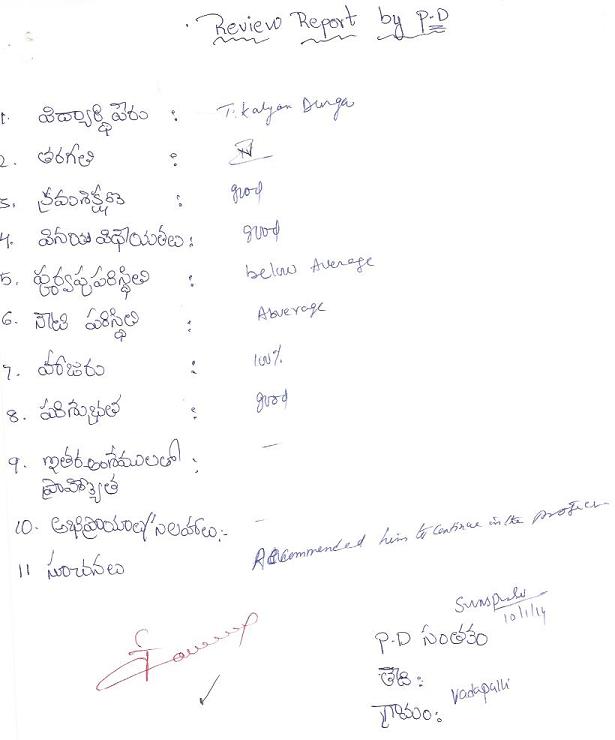 Review Report by P-D
1. విద్యార్థి పేరు : T. Kalyan Durga
2. తరగతి : IV
3. క్రమశిక్షణ : good
4. వినయ విధేయతలు : good
5. పూర్వపు పరిస్థితి : below Average
6. నాటి పరిస్థితి : Abverage
7. హాజరు : 100%
8. పరిశుభ్రత : good
9. ఇతర అంశములలో : —
ప్రావీణ్యత
10. అభిప్రాయాలు/సలహాలు:- —
11 సూచనలు Recommended him to continue in the project
10/1/14
P.D సంతకం
తేది :
గ్రామం : Vadapalli